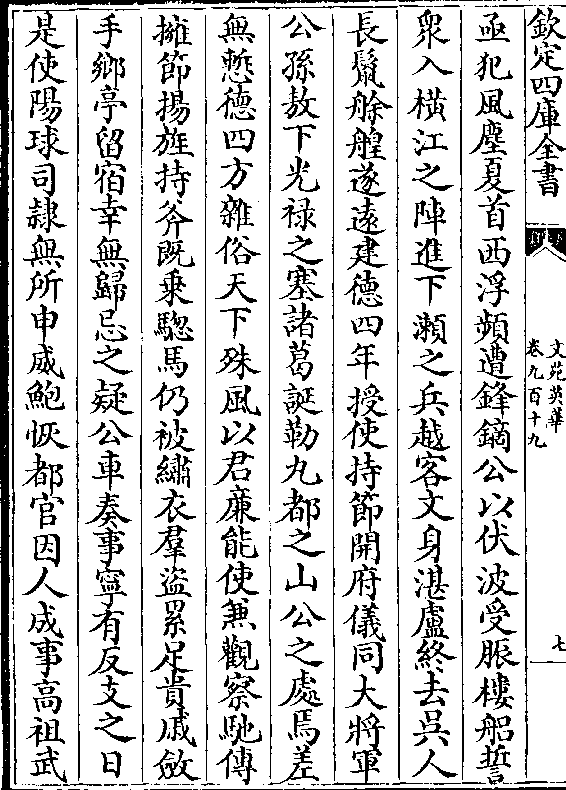 欽定四庫全書
文苑英華
卷九百十九
七
亟犯風塵夏首西浮頻遭鋒鏑公以伏波受脤樓船誓
衆入橫江之陣進下瀨之兵越客文身湛盧終去吳人
長鬛艅艎遂遠建德四年授使持節開府儀同大將軍
公孫敖下光禄之塞諸葛誕勒九都之山公之處焉差
無慙德四方雜俗天下殊風以君廉能使兼觀察馳傳
擁節揚旌持斧既乗驄馬仍被繡衣羣盗累足貴戚斂
手鄉亭留宿幸無歸忌之疑公車奏事寧有反支之日
是使陽球司隷無所申威鮑恢都官因人成事髙祖武